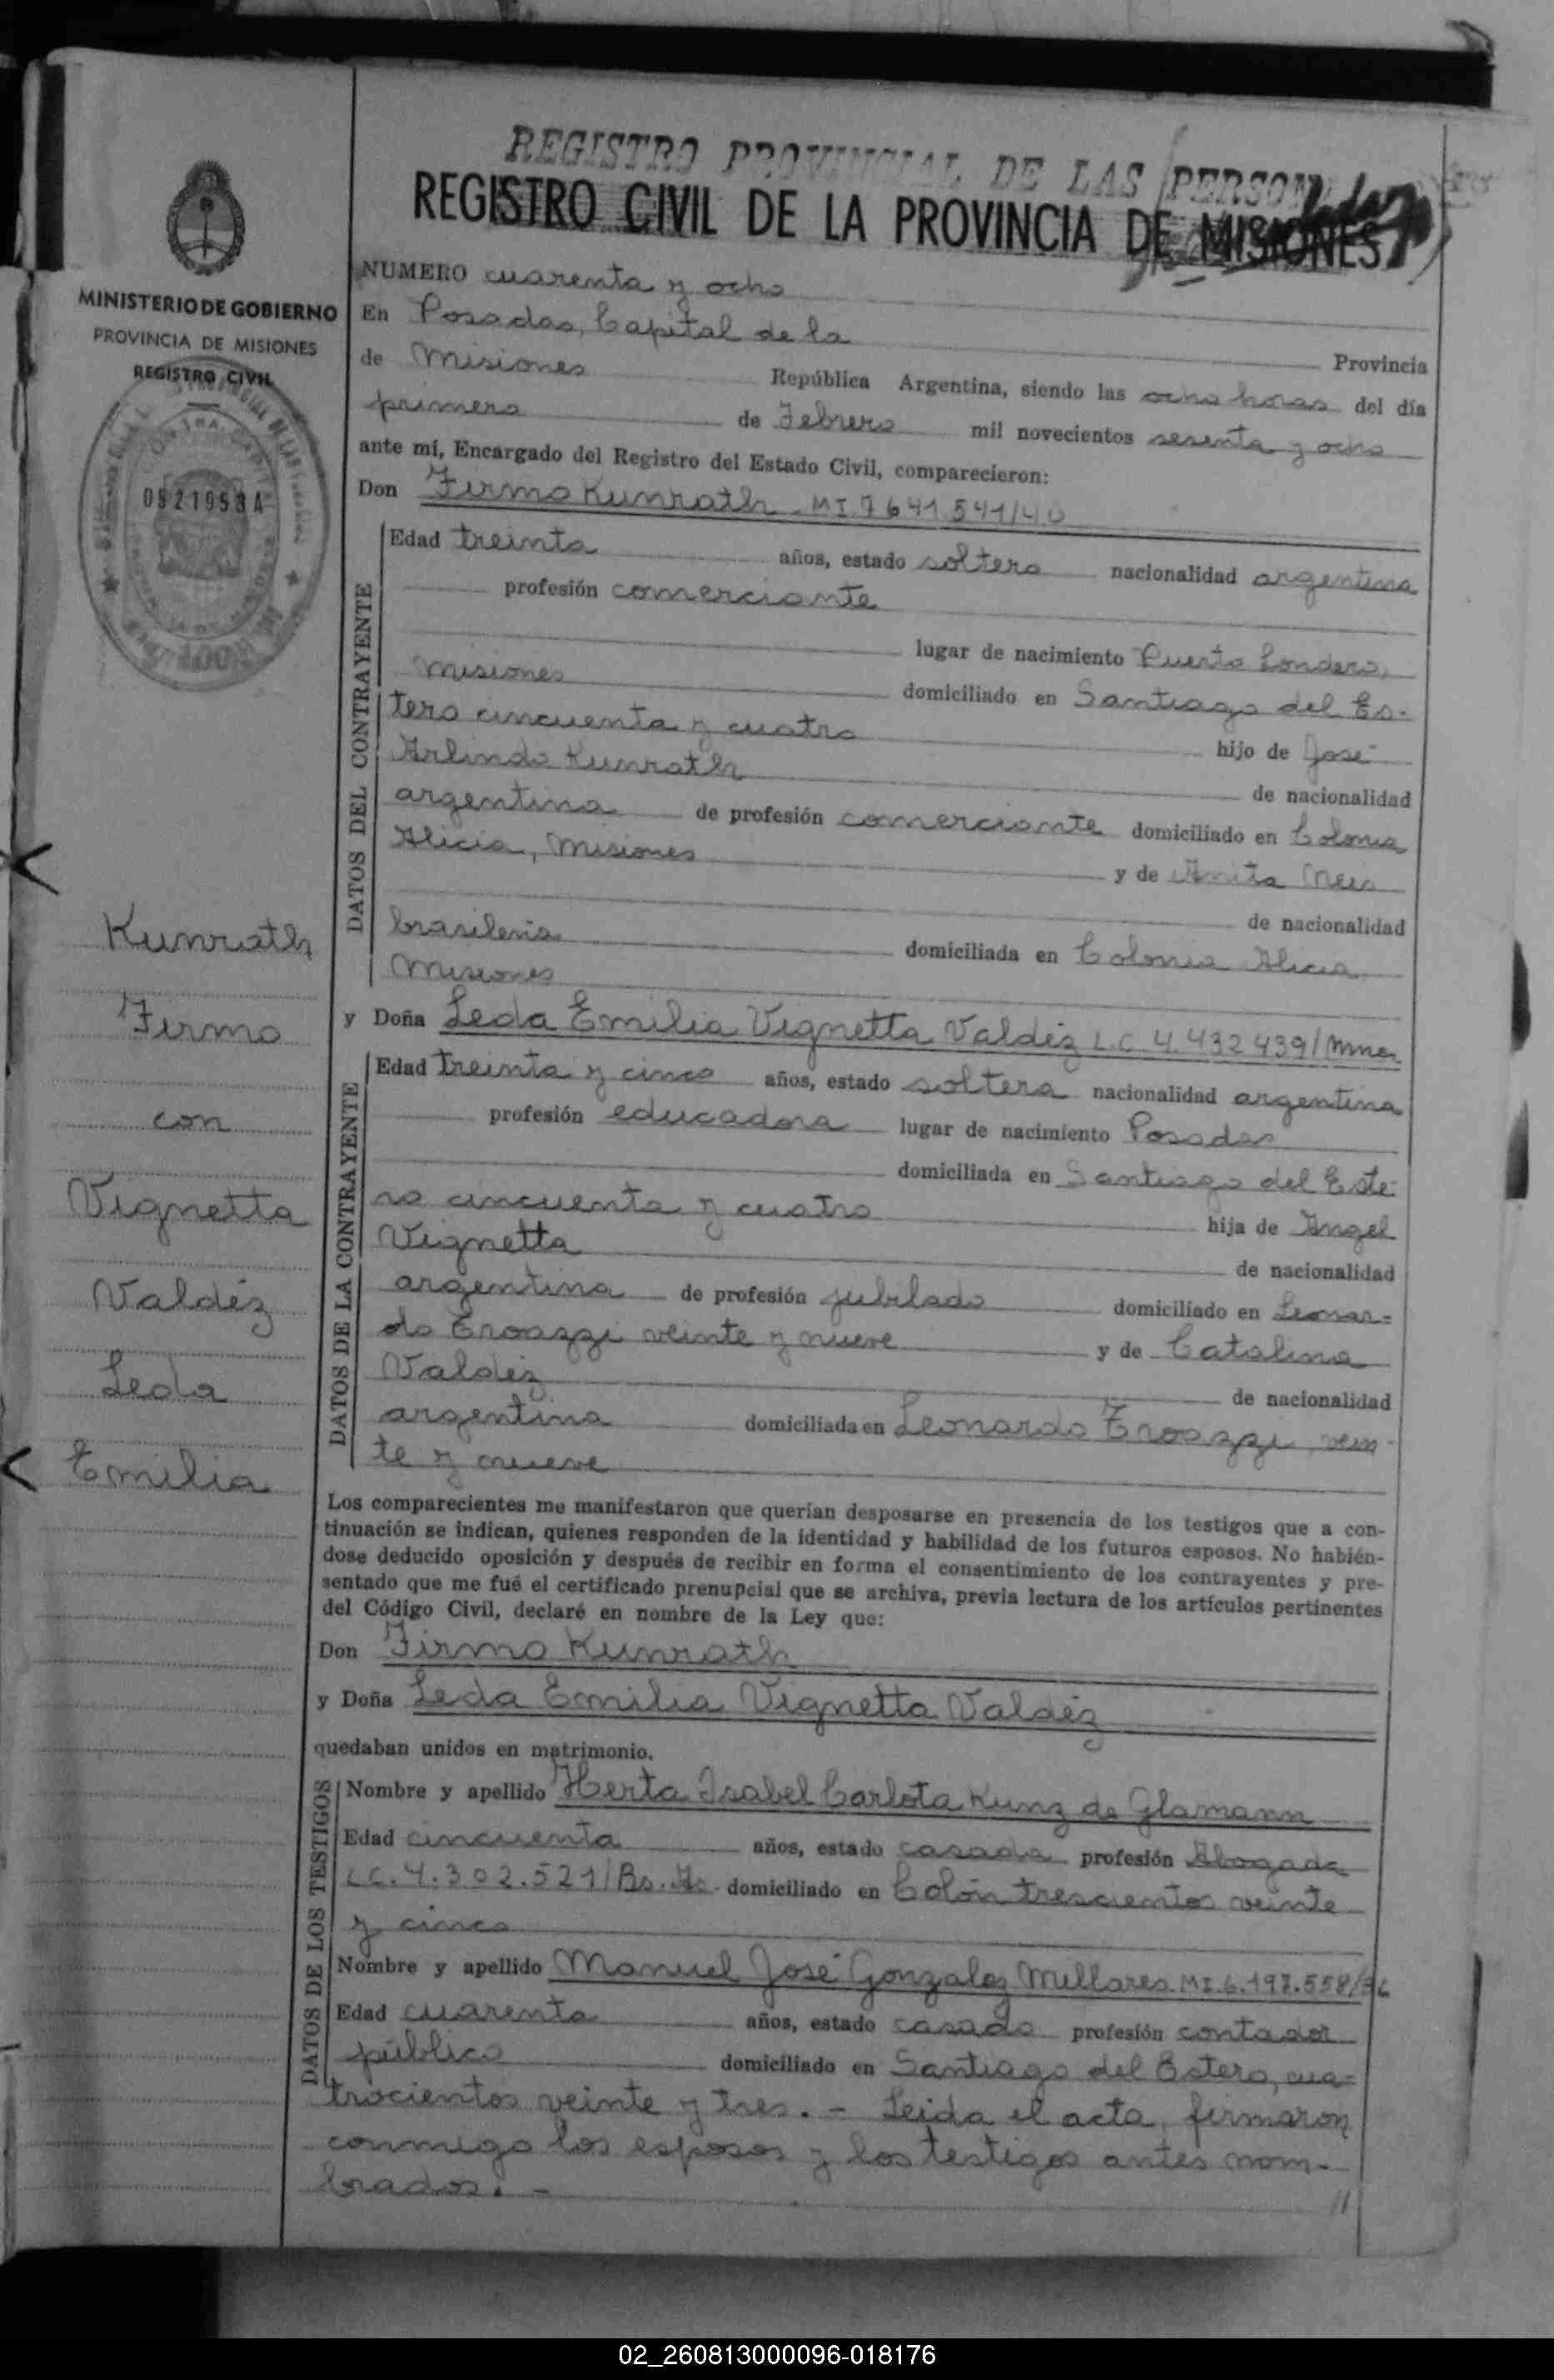 REGISTRO PROVINCIAL DE LAS PERSON
REGISTRO CIVIL DE LA PROVINCIA DE MISIONES
MINISTERIO DE GOBIERNO
PROVINCIA DE MISIONES
REGISTRO CIVIL
0521953A
Kunrath
Firmo
con
Vignetta
Valdéz
Leda
Emilia
NUMERO cuarenta y ocho
En Posadas, Capital de la Provincia
de Misiones República Argentina, siendo las ocho horas del día
primero de Febrero mil novecientos sesenta y ocho
ante mí, Encargado del Registro del Estado Civil, comparecieron:
Don Firmo Kunrath MI. 7641541/40
DATOS DEL CONTRAYENTE
Edad treinta años, estado soltero nacionalidad argentina
profesión comerciante
lugar de nacimiento Puerto Londero,
Misiones domiciliado en Santiago del Es-
tero cincuenta y cuatro hijo de José
Arlindo Kunrath de nacionalidad
argentina de profesión comerciante domiciliado en Colonia
Alicia, Misiones y de Anita
de nacionalidad
brasilena domiciliada en Colonia Alicia
Misiones
y Doña Leda Emilia Vignetta Valdéz L.C. 4.432439/Mnes
DATOS DE LA CONTRAYENTE
Edad treinta y cinco años, estado soltera nacionalidad argentina
profesión educadora lugar de nacimiento Posadas
domiciliada en Santiago del Este-
ro cincuenta y cuatro hija de Angel
Vignetta de nacionalidad
argentina de profesión jubilado domiciliado en Leonar-
do Troazzi veinte y nueve y de Catalina
Valdéz de nacionalidad
argentina domiciliada en Leonardo Troazzi, vein-
te y nueve
Los comparecientes me manifestaron que querían desposarse en presencia de los testigos que a con-
tinuación se indican, quienes responden de la identidad y habilidad de los futuros esposos. No habién-
dose deducido oposición y después de recibir en forma el consentimiento de los contrayentes y pre-
sentado que me fué el certificado prenupcial que se archiva, previa lectura de los artículos pertinentes
del Código Civil, declaré en nombre de la Ley que:
Don Firmo Kunrath
y Doña Leda Emilia Vignetta Valdéz
quedaban unidos en matrimonio.
DATOS DE LOS TESTIGOS
Nombre y apellido Herta Isabel Carlota Kunz de Glamann
Edad cincuenta años, estado casada profesión Abogada
LC. 4.302.521/Bs. As. domiciliado en Colón trescientos veinte
y cinco
Nombre y apellido Manuel José Gonzalez Millares MI 6.197.558/36
Edad cuarenta años, estado casado profesión contador
público domiciliado en Santiago del Estero, cua-
trocientos veinte y tres. - Leida el acta, firmaron
conmigo los esposos y los testigos antes nom-
brados. -
//
02_260813000096-018176